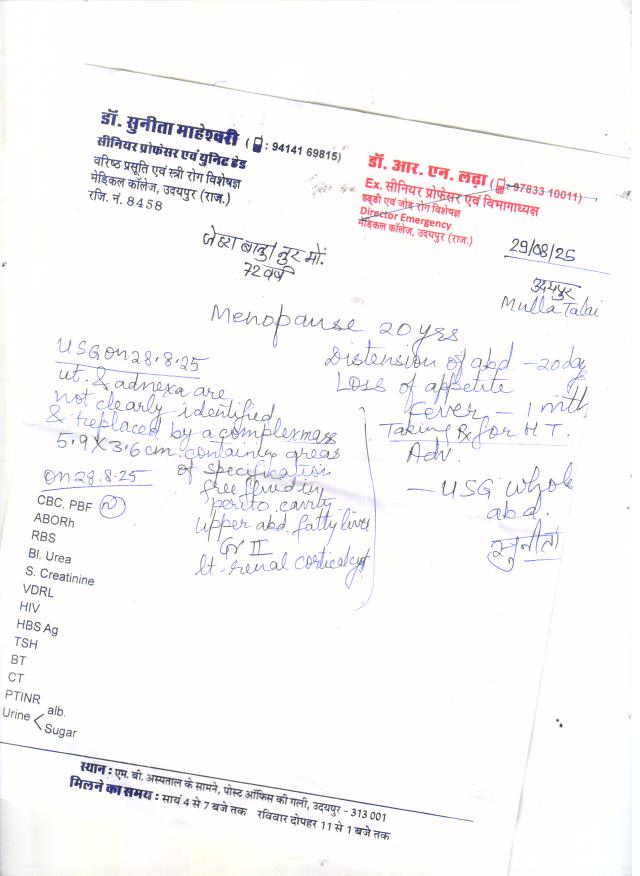 डॉ. सुनीता माहेश्वरी ( : 94141 69815)
सीनियर प्रोफेसर एवं युनिट हेड
वरिष्ठ प्रसूति एवं स्त्री रोग विशेषज्ञ
मेडिकल कॉलेज, उदयपुर (राज.)
रजि. नं. 8458
डॉ. आर. एन. लढ़ा ( : 97833 10011)
Ex. सीनियर प्रोफेसर एवं विभागाध्यक्ष
हड्डी एवं जोड़ रोग विशेषज्ञ
Director Emergency
मेडिकल कॉलेज, उदयपुर (राज.)
29/08/25
जेहरा बानु/नुर मों.
72 वर्ष
उदयपुर
Mulla Talai
Menopause 20 yrs
USG on 28.8.25
ut. & adnexa are
not clearly identified
& replaced by a complex mass
5.9 X 3.6 cm. containing areas
of specification
free fluid in
perito. cavity
upper abd. fatty liver
Gr II
lt. renal cortical cyst
Distension of abd. - 20 days
Loss of appetite
Fever - 1 mth
Taking Rx for H T.
Adv.
- USG whole
abd.
सुनीता
on 28.8.25
CBC, PBF
ABORh
RBS
Bl. Urea
S. Creatinine
VDRL
HIV
HBS Ag
TSH
BT
CT
PTINR
Urine < alb.
Sugar
स्थान : एम. बी. अस्पताल के सामने, पोस्ट ऑफिस की गली, उदयपुर - 313 001
मिलने का समय : सायं 4 से 7 बजे तक रविवार दोपहर 11 से 1 बजे तक